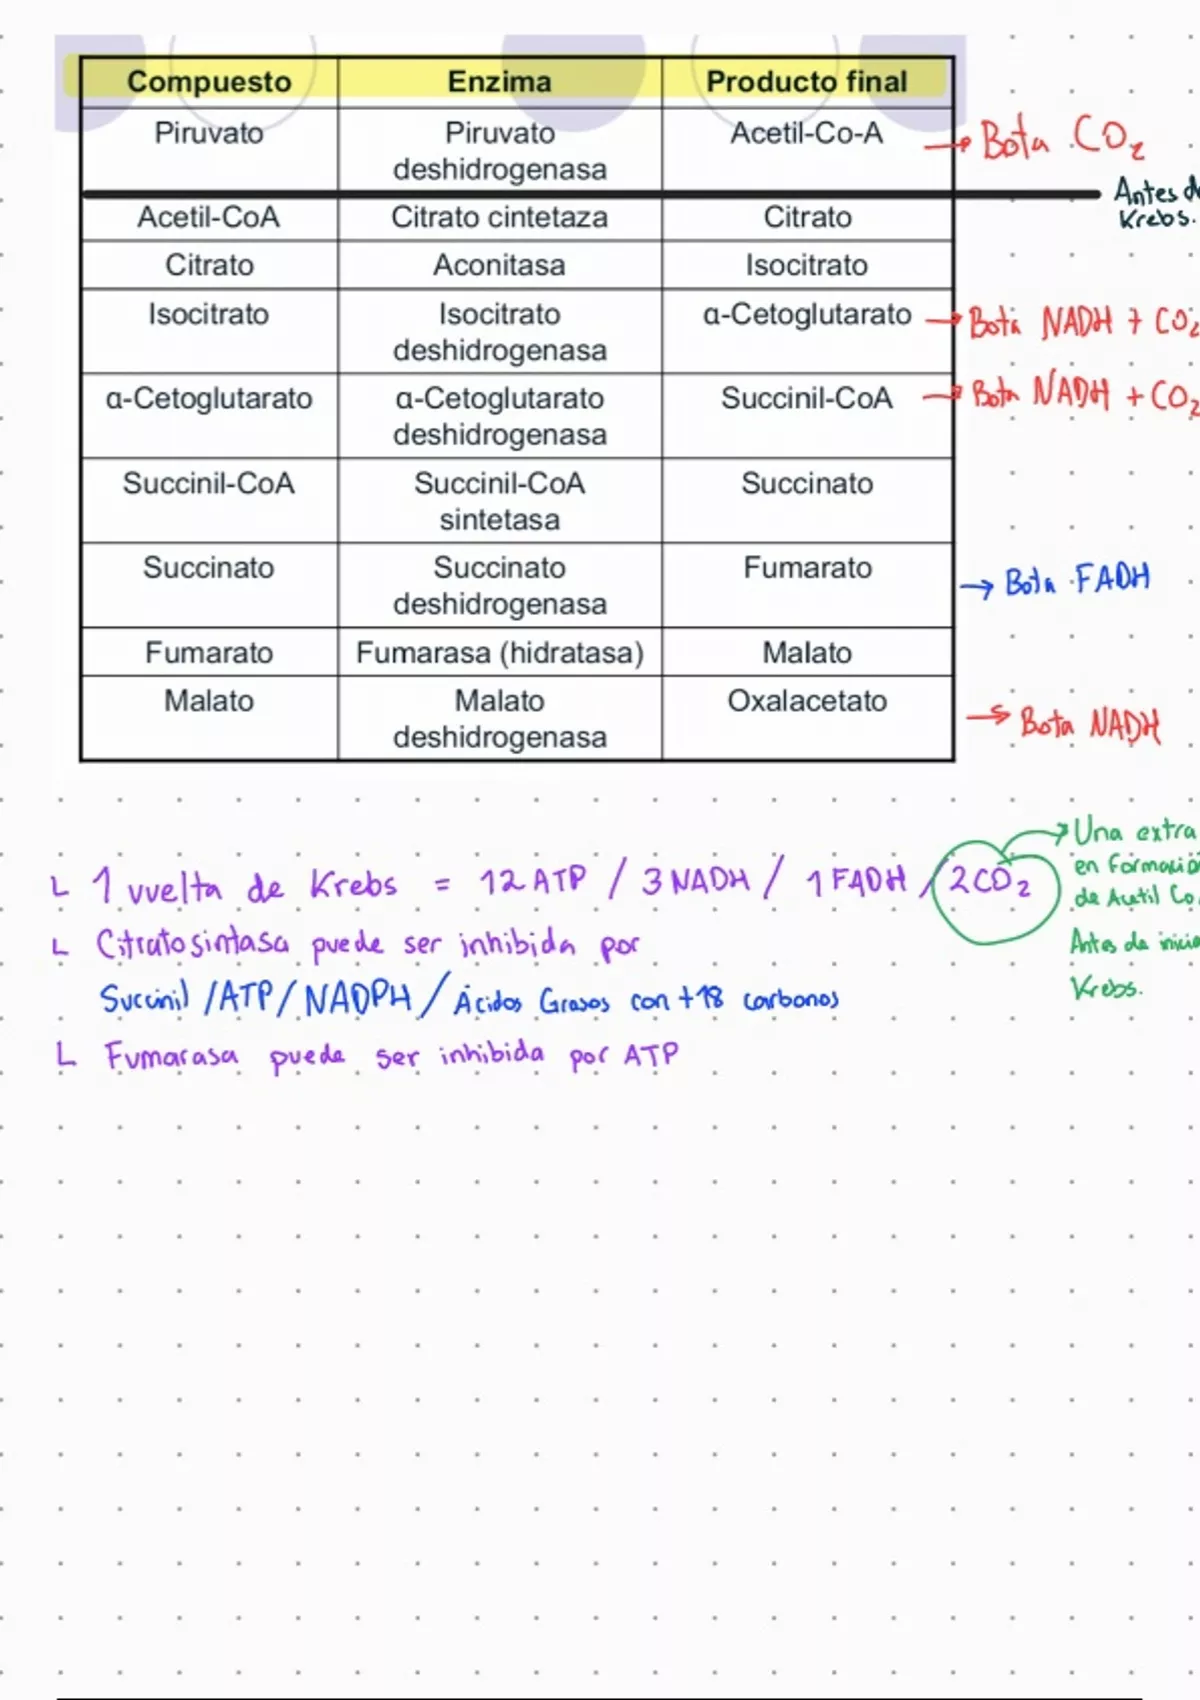 Compuesto Enzima Producto final
Piruvato Piruvato deshidrogenasa Acetil-Co-A → Bota CO₂
Antes de Krebs.
Acetil-CoA Citrato cintetaza Citrato
Citrato Aconitasa Isocitrato
Isocitrato Isocitrato deshidrogenasa α-Cetoglutarato → Bota NADH + CO₂
α-Cetoglutarato α-Cetoglutarato deshidrogenasa Succinil-CoA → Bota NADH + CO₂
Succinil-CoA Succinil-CoA sintetasa Succinato
Succinato Succinato deshidrogenasa Fumarato → Bota FADH
Fumarato Fumarasa (hidratasa) Malato
Malato Malato deshidrogenasa Oxalacetato → Bota NADH
1 vuelta de Krebs = 12 ATP / 3 NADH / 1 FADH / 2CO₂
→ Una extra
en Formació
de Acetil Co
Antes de inicia
Krebs.
Citrato sintasa puede ser inhibida por
Succinil / ATP / NADPH / Ácidos Grasos con +18 carbonos
Fumarasa puede ser inhibida por ATP